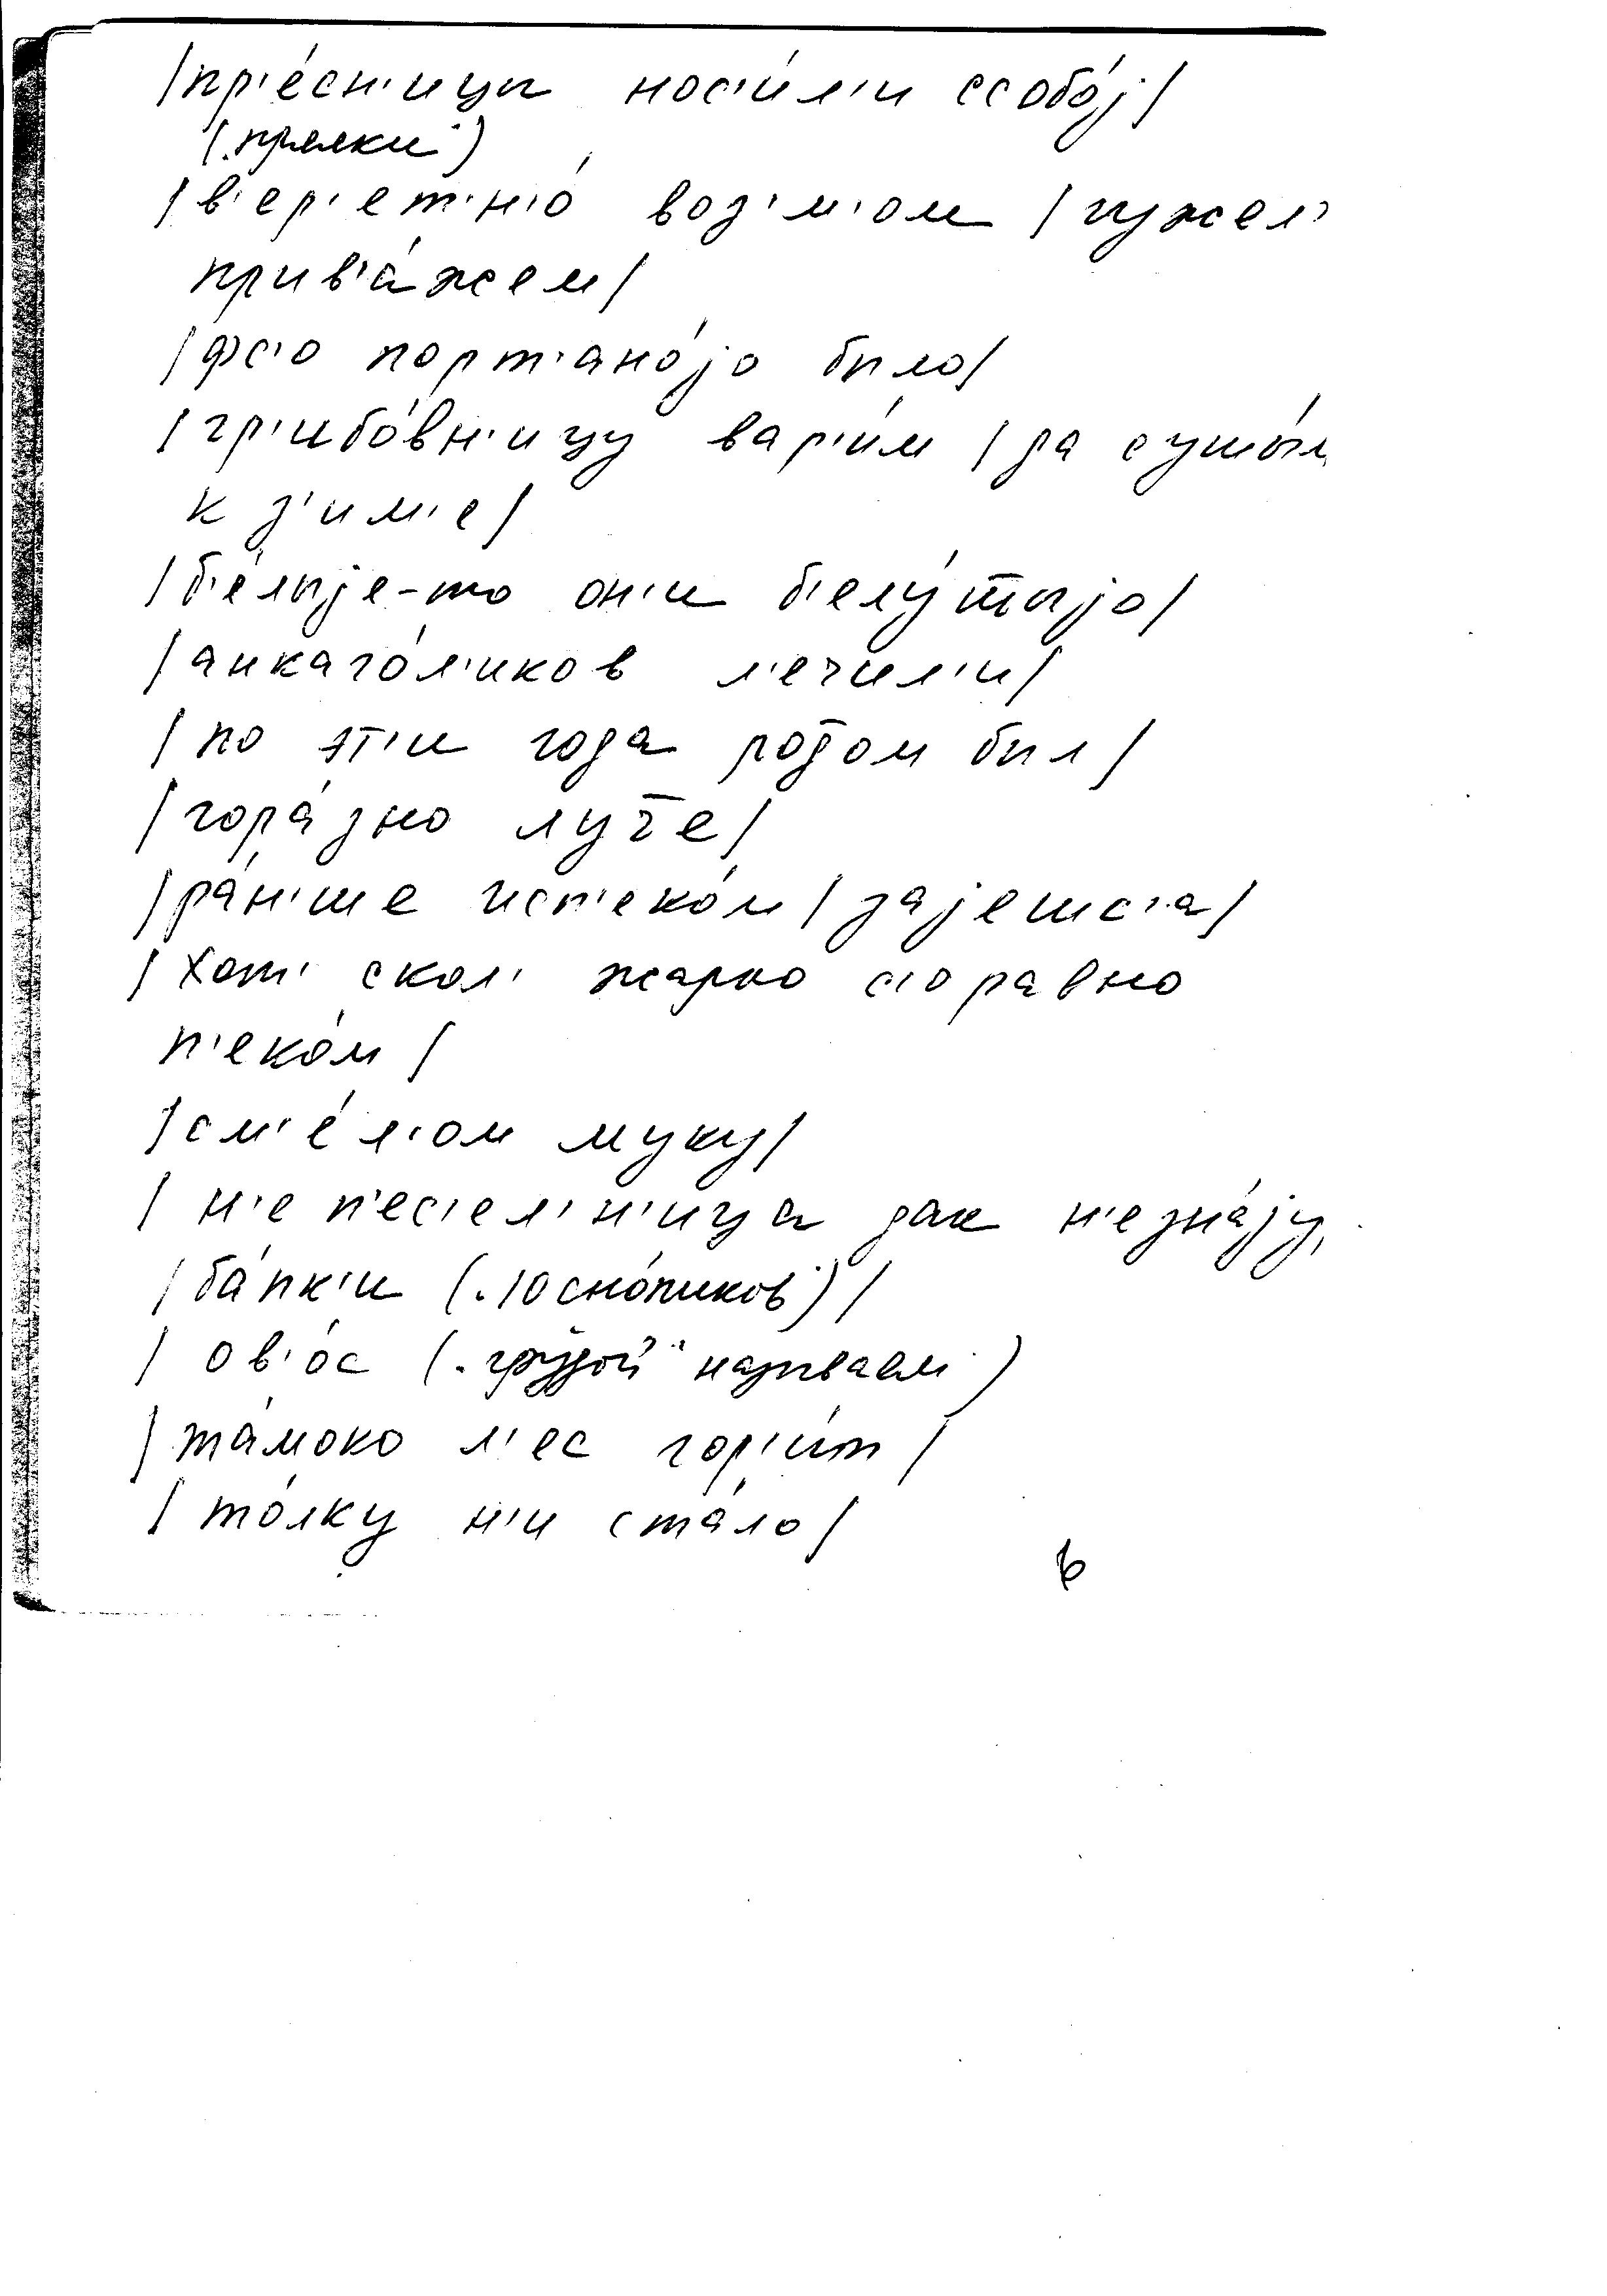 /пр'е́сн'ицы нос'и́л'и ссобо́j/
(.прялки")
/в'ер'ет'н'о́ воз'м'ом / гужел'
прив'а́жем/
/фс'о порт'ано́jо было/
/гр'ибо́вн'ицу вар'и́м / да сушы́м
к з'им'е/
/б'е́лыjе-то он'и б'елу́шыjо/
/анкаго́л'иков л'ечил'и/
/по эт̄'и года род̄ом был/
/гора́зно луч̄е/
/ра́н'ше испеко́м / зајешс'а/
/хот' скол' жарко с'о равно
п'еко́м/
/см'е́л'ом муку/
/н'е п'ес'ел'н'ица дак н'е зна́jу,
/ба́пк'и (.10 сно́пиков)/
/ов'о́с (. грудой" называем)
/та́моко л'ес гор'и́т/
/то́лку н'и ста́ло/
6